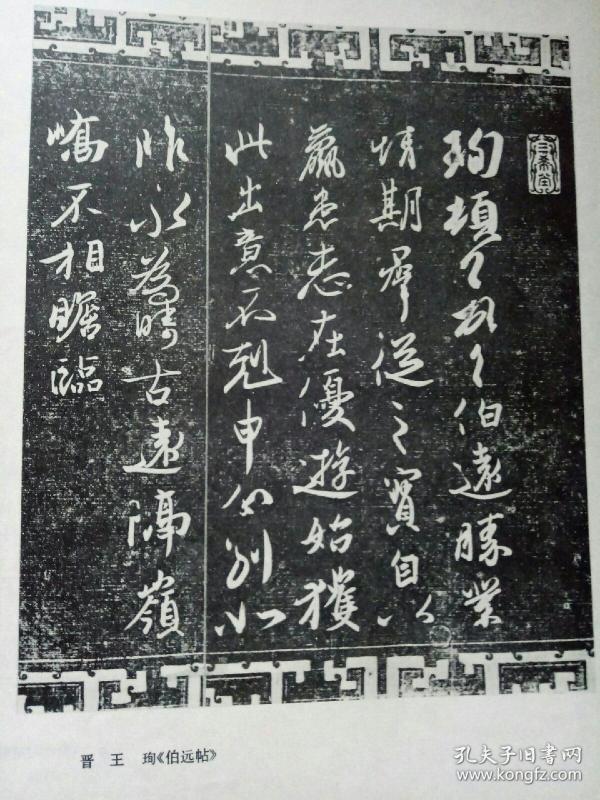 三希堂
珣頓首頓首伯遠勝業
情期群從之寶自以
羸患志在優遊始獲
此出意不剋申分別如
昨永為疇古遠隔嶺
嶠不相瞻臨
晋 王 珣《伯远帖》
孔夫子旧书网
www.kongfz.com